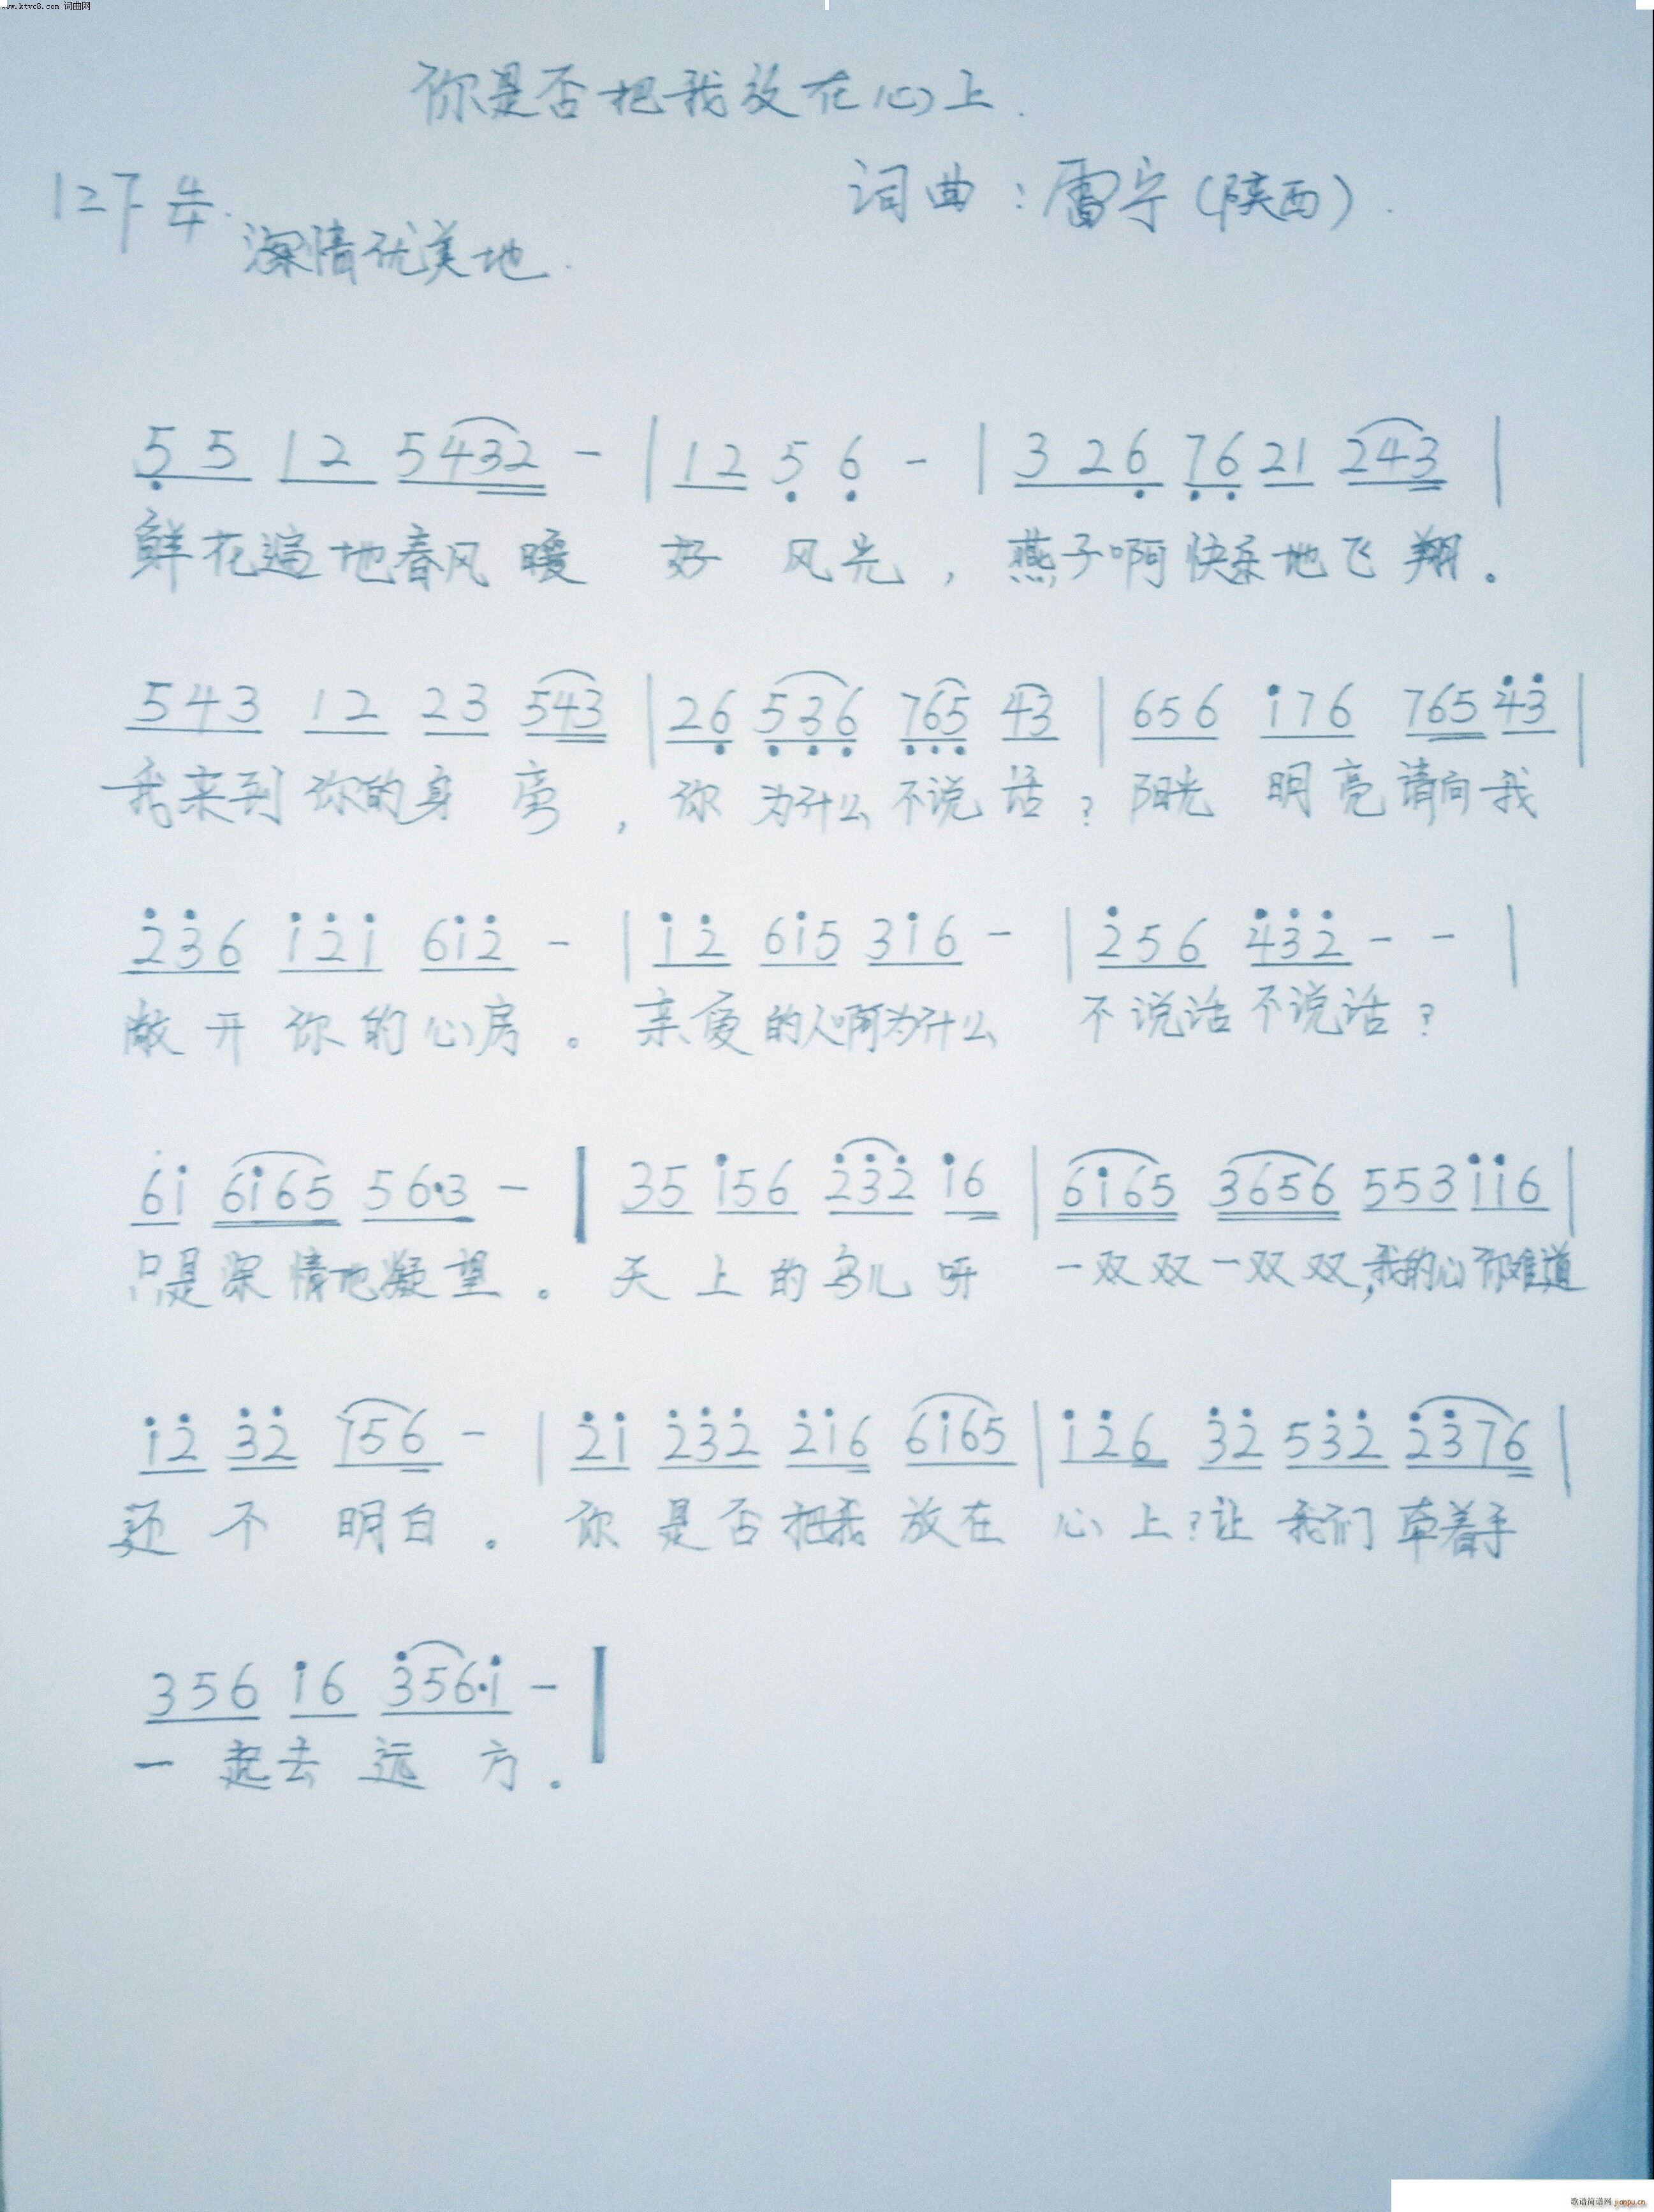 www.ktvc8.com 词曲网
你是否把我放在心上.
词曲：雷宁(陕西).
1=F 4/4.
深情优美地.
5̣ 5 1 2 5 4 3 2 - | 1 2 5̣ 6̣ - | 3 2 6̣ 7̣ 6̣ 2 1 2 4 3 |
鲜花遍地春风暖 好风光，燕子啊快乐地飞翔。
5 4 3 1 2 2 3 5 4 3 | 2 6̣ 5̣ 3̣ 6̣ 7̣ 6̣ 5̣ 4 3 | 6 5 6 1̇ 7 6 7 6 5 4̇ 3̇ |
我来到你的身旁，你为什么不说话？阳光明亮请向我
2̇ 3̇ 6 1̇ 2̇ 1̇ 6 1̇ 2̇ - | 1̇ 2̇ 6 1̇ 5 3 1̇ 6 - | 2̇ 5 6 4̇ 3̇ 2̇ - - |
敞开你的心房。亲爱的人啊为什么 不说话不说话？
6 1̇ 6 1̇ 6 5 5 6·3 - | 3 5 1̇ 5 6 2̇ 3̇ 2̇ 1̇ 6 | 6 1̇ 6 5 3 6 5 6 5 5 3 1̇ 1̇ 6 |
只是深情地凝望。天上的鸟儿呀 一双双一双双，我的心你难道
1̇ 2̇ 3̇ 2̇ 7 5 6 - | 2̇ 1̇ 2̇ 3̇ 2̇ 2̇ 1̇ 6 6 1̇ 6 5 | 1̇ 2̇ 6 3̇ 2̇ 5 3̇ 2̇ 2̇ 3̇ 7 6 |
还不明白。你是否把我放在心上？让我们牵着手
3 5 6 1̇ 6 3̇ 5 6·1̇ - |
一起去远方。
歌谱简谱网 jianpu.cn